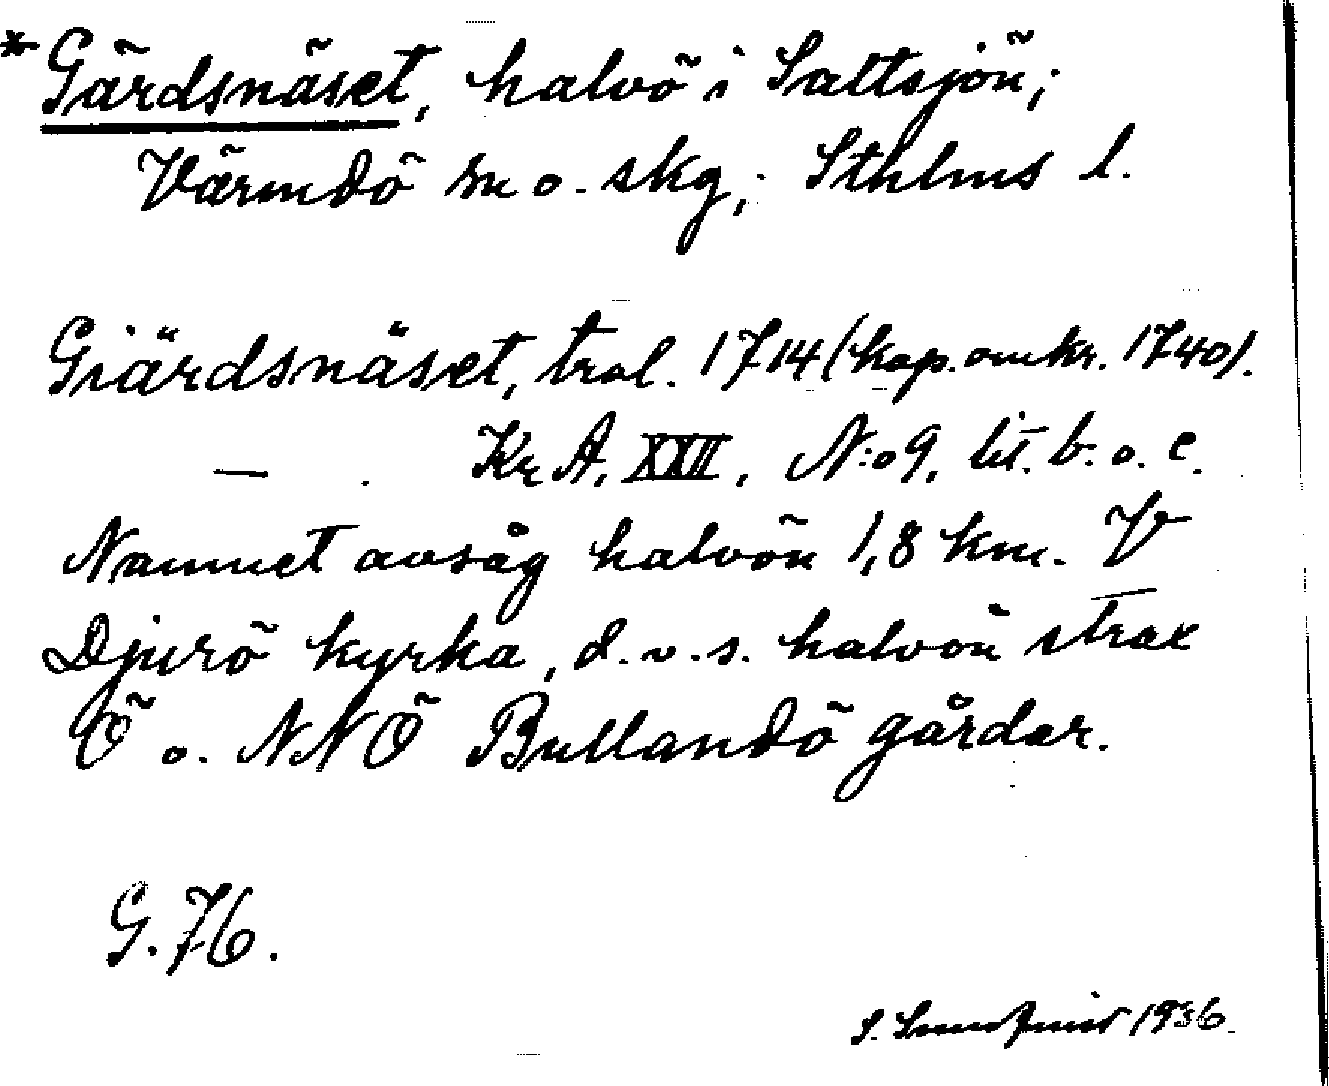 *Gärdsnäset, halvö i Saltsjön;
Värmdö sn o. skg; Sthlms l.
Giärdsnäset, trol. 1714 (kop. omkr. 1740).
— . Kr A, XXII, N:o 9, lit. b. o. c.
Namnet avsåg halvön 1,8 km. V
Djurö kyrka, d.v.s. halvön strax
Ö o. NNÖ Bullandö gårdar.
G. 76.
S. 1936.